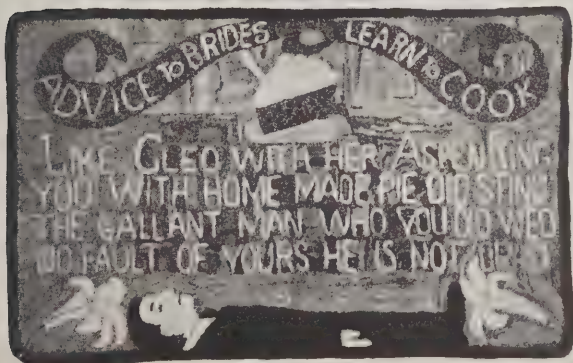 ADVICE to BRIDES LEARN to COOK
LIKE CLEO WITH HER ASP
YOU WITH HOME MADE PIE DID STING
THE GALLANT MAN WHO YOU DO WED
NO FAULT OF YOURS HE IS NOT